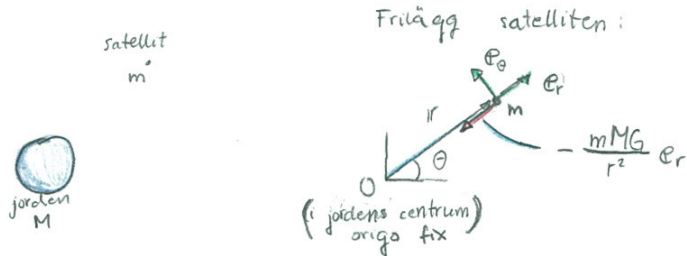 satellit
m
jorden
M
Frilägg satelliten:
e_θ
e_r
m
r
θ
O
- mMG/r² e_r
(i jordens centrum)
origo fix